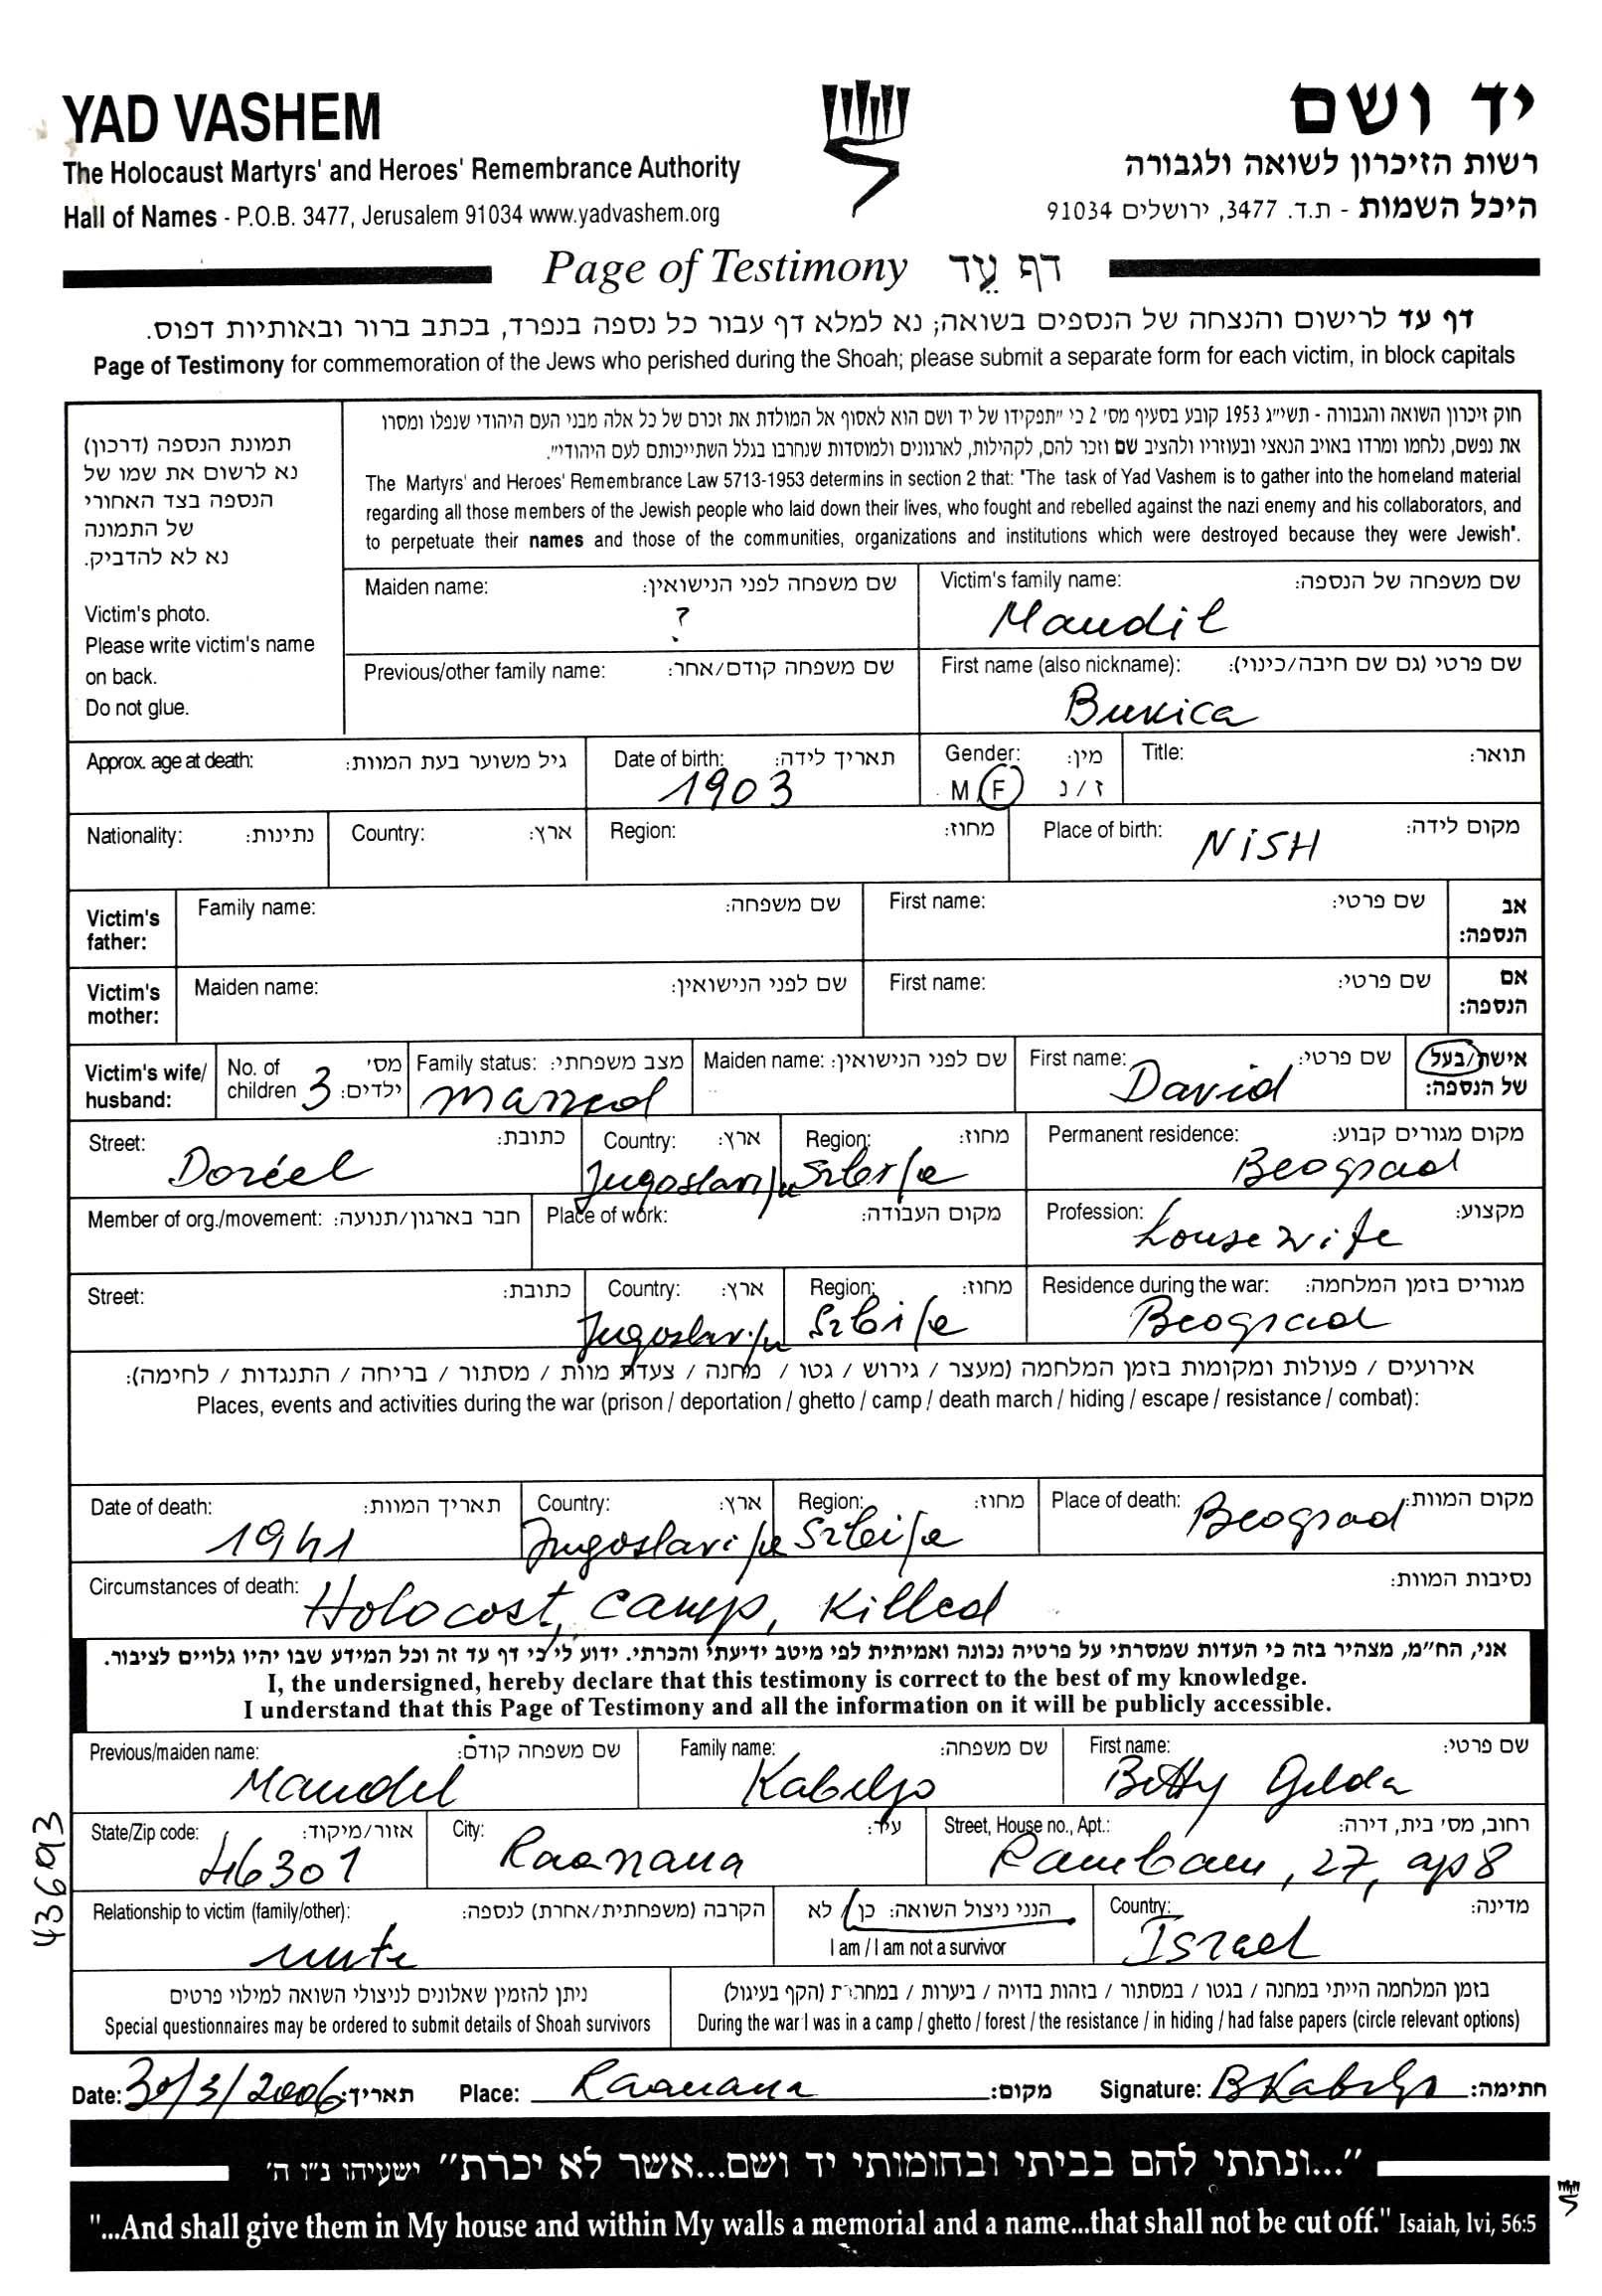 YAD VASHEM
יד ושם
The Holocaust Martyrs' and Heroes' Remembrance Authority
רשות הזיכרון לשואה ולגבורה
Hall of Names - P.O.B. 3477, Jerusalem 91034 www.yadvashem.org
היכל השמות - ת.ד. 3477, ירושלים 91034
Page of Testimony דף עֵד
דף עד לרישום והנצחה של הנספים בשואה; נא למלא דף עבור כל נספה בנפרד, בכתב ברור ובאותיות דפוס.
Page of Testimony for commemoration of the Jews who perished during the Shoah; please submit a separate form for each victim, in block capitals
תמונת הנספה (דרכון)
נא לרשום את שמו של
הנספה בצד האחורי
של התמונה
נא לא להדביק.
Victim's photo.
Please write victim's name
on back.
Do not glue.
חוק זיכרון השואה והגבורה - תשי"ג 1953 קובע בסעיף מס' 2 כי "תפקידו של יד ושם הוא לאסוף אל המולדת את זכרם של כל אלה מבני העם היהודי שנפלו ומסרו
את נפשם, נלחמו ומרדו באויב הנאצי ובעוזריו ולהציב שם וזכר להם, לקהילות, לארגונים ולמוסדות שנחרבו בגלל השתייכותם לעם היהודי".
The Martyrs' and Heroes' Remembrance Law 5713-1953 determins in section 2 that: "The task of Yad Vashem is to gather into the homeland material
regarding all those members of the Jewish people who laid down their lives, who fought and rebelled against the nazi enemy and his collaborators, and
to perpetuate their names and those of the communities, organizations and institutions which were destroyed because they were Jewish".
Maiden name: שם משפחה לפני הנישואין:
?
Victim's family name: שם משפחה של הנספה:
Mandil
Previous/other family name: שם משפחה קודם/אחר:
First name (also nickname): שם פרטי (גם שם חיבה/כינוי):
Bukica
Approx. age at death: גיל משוער בעת המוות:
Date of birth: תאריך לידה:
1903
Gender: מין:
M F ז / נ
Title: תואר:
Nationality: נתינות:
Country: ארץ:
Region: מחוז:
Place of birth: מקום לידה:
NiSH
Victim's father:
Family name: שם משפחה:
First name: שם פרטי:
אב הנספה:
Victim's mother:
Maiden name: שם לפני הנישואין:
First name: שם פרטי:
אם הנספה:
Victim's wife/ husband:
No. of children 3 מס' ילדים:
Family status: מצב משפחתי:
Maried
Maiden name: שם לפני הנישואין:
First name: שם פרטי:
David
אישת/בעל של הנספה:
Street: כתובת:
Country: ארץ:
Jugoslavija
Region: מחוז:
Srbija
Permanent residence: מקום מגורים קבוע:
Beograd
Member of org./movement: חבר בארגון/תנועה:
Place of work: מקום העבודה:
Profession: מקצוע:
housewife
Street: כתובת:
Country: ארץ:
Jugoslavija
Region: מחוז:
Srbija
Residence during the war: מגורים בזמן המלחמה:
Beograd
אירועים / פעולות ומקומות בזמן המלחמה (מעצר / גירוש / גטו / מחנה / צעדת מוות / מסתור / בריחה / התנגדות / לחימה):
Places, events and activities during the war (prison / deportation / ghetto / camp / death march / hiding / escape / resistance / combat):
Date of death: תאריך המוות:
1941
Country: ארץ:
Jugoslavija
Region: מחוז:
Srbija
Place of death: מקום המוות:
Beograd
Circumstances of death: נסיבות המוות:
Holocost, camp, killed
אני, הח"מ, מצהיר בזה כי העדות שמסרתי על פרטיה נכונה ואמיתית לפי מיטב ידיעתי והכרתי. ידוע לי כי דף עד זה וכל המידע שבו יהיו גלויים לציבור.
I, the undersigned, hereby declare that this testimony is correct to the best of my knowledge.
I understand that this Page of Testimony and all the information on it will be publicly accessible.
Previous/maiden name: שם משפחה קודם:
Mandil
Family name: שם משפחה:
Kabiljo
First name: שם פרטי:
Betty Gilda
State/Zip code: אזור/מיקוד:
46301
City: עיר:
Raanana
Street, House no., Apt.: רחוב, מס' בית, דירה:
Rambam, 27, ap 8
Relationship to victim (family/other): הקרבה (משפחתית/אחרת) לנספה:
הנני ניצול השואה: כן / לא
I am / I am not a survivor
Country: מדינה:
Israel
ניתן להזמין שאלונים לניצולי השואה למילוי פרטים
Special questionnaires may be ordered to submit details of Shoah survivors
בזמן המלחמה הייתי במחנה / בגטו / במסתור / בזהות בדויה / ביערות / במחתרת (הקף בעיגול)
During the war I was in a camp / ghetto / forest / the resistance / in hiding / had false papers (circle relevant options)
Date: 30/3/2006 תאריך: Place: Raanana מקום: Signature: BKabiljo חתימה:
"...ונתתי להם בביתי ובחומותי יד ושם...אשר לא יכרת" ישעיהו נ"ו ה'
"...And shall give them in My house and within My walls a memorial and a name...that shall not be cut off." Isaiah, lvi, 56:5
436693